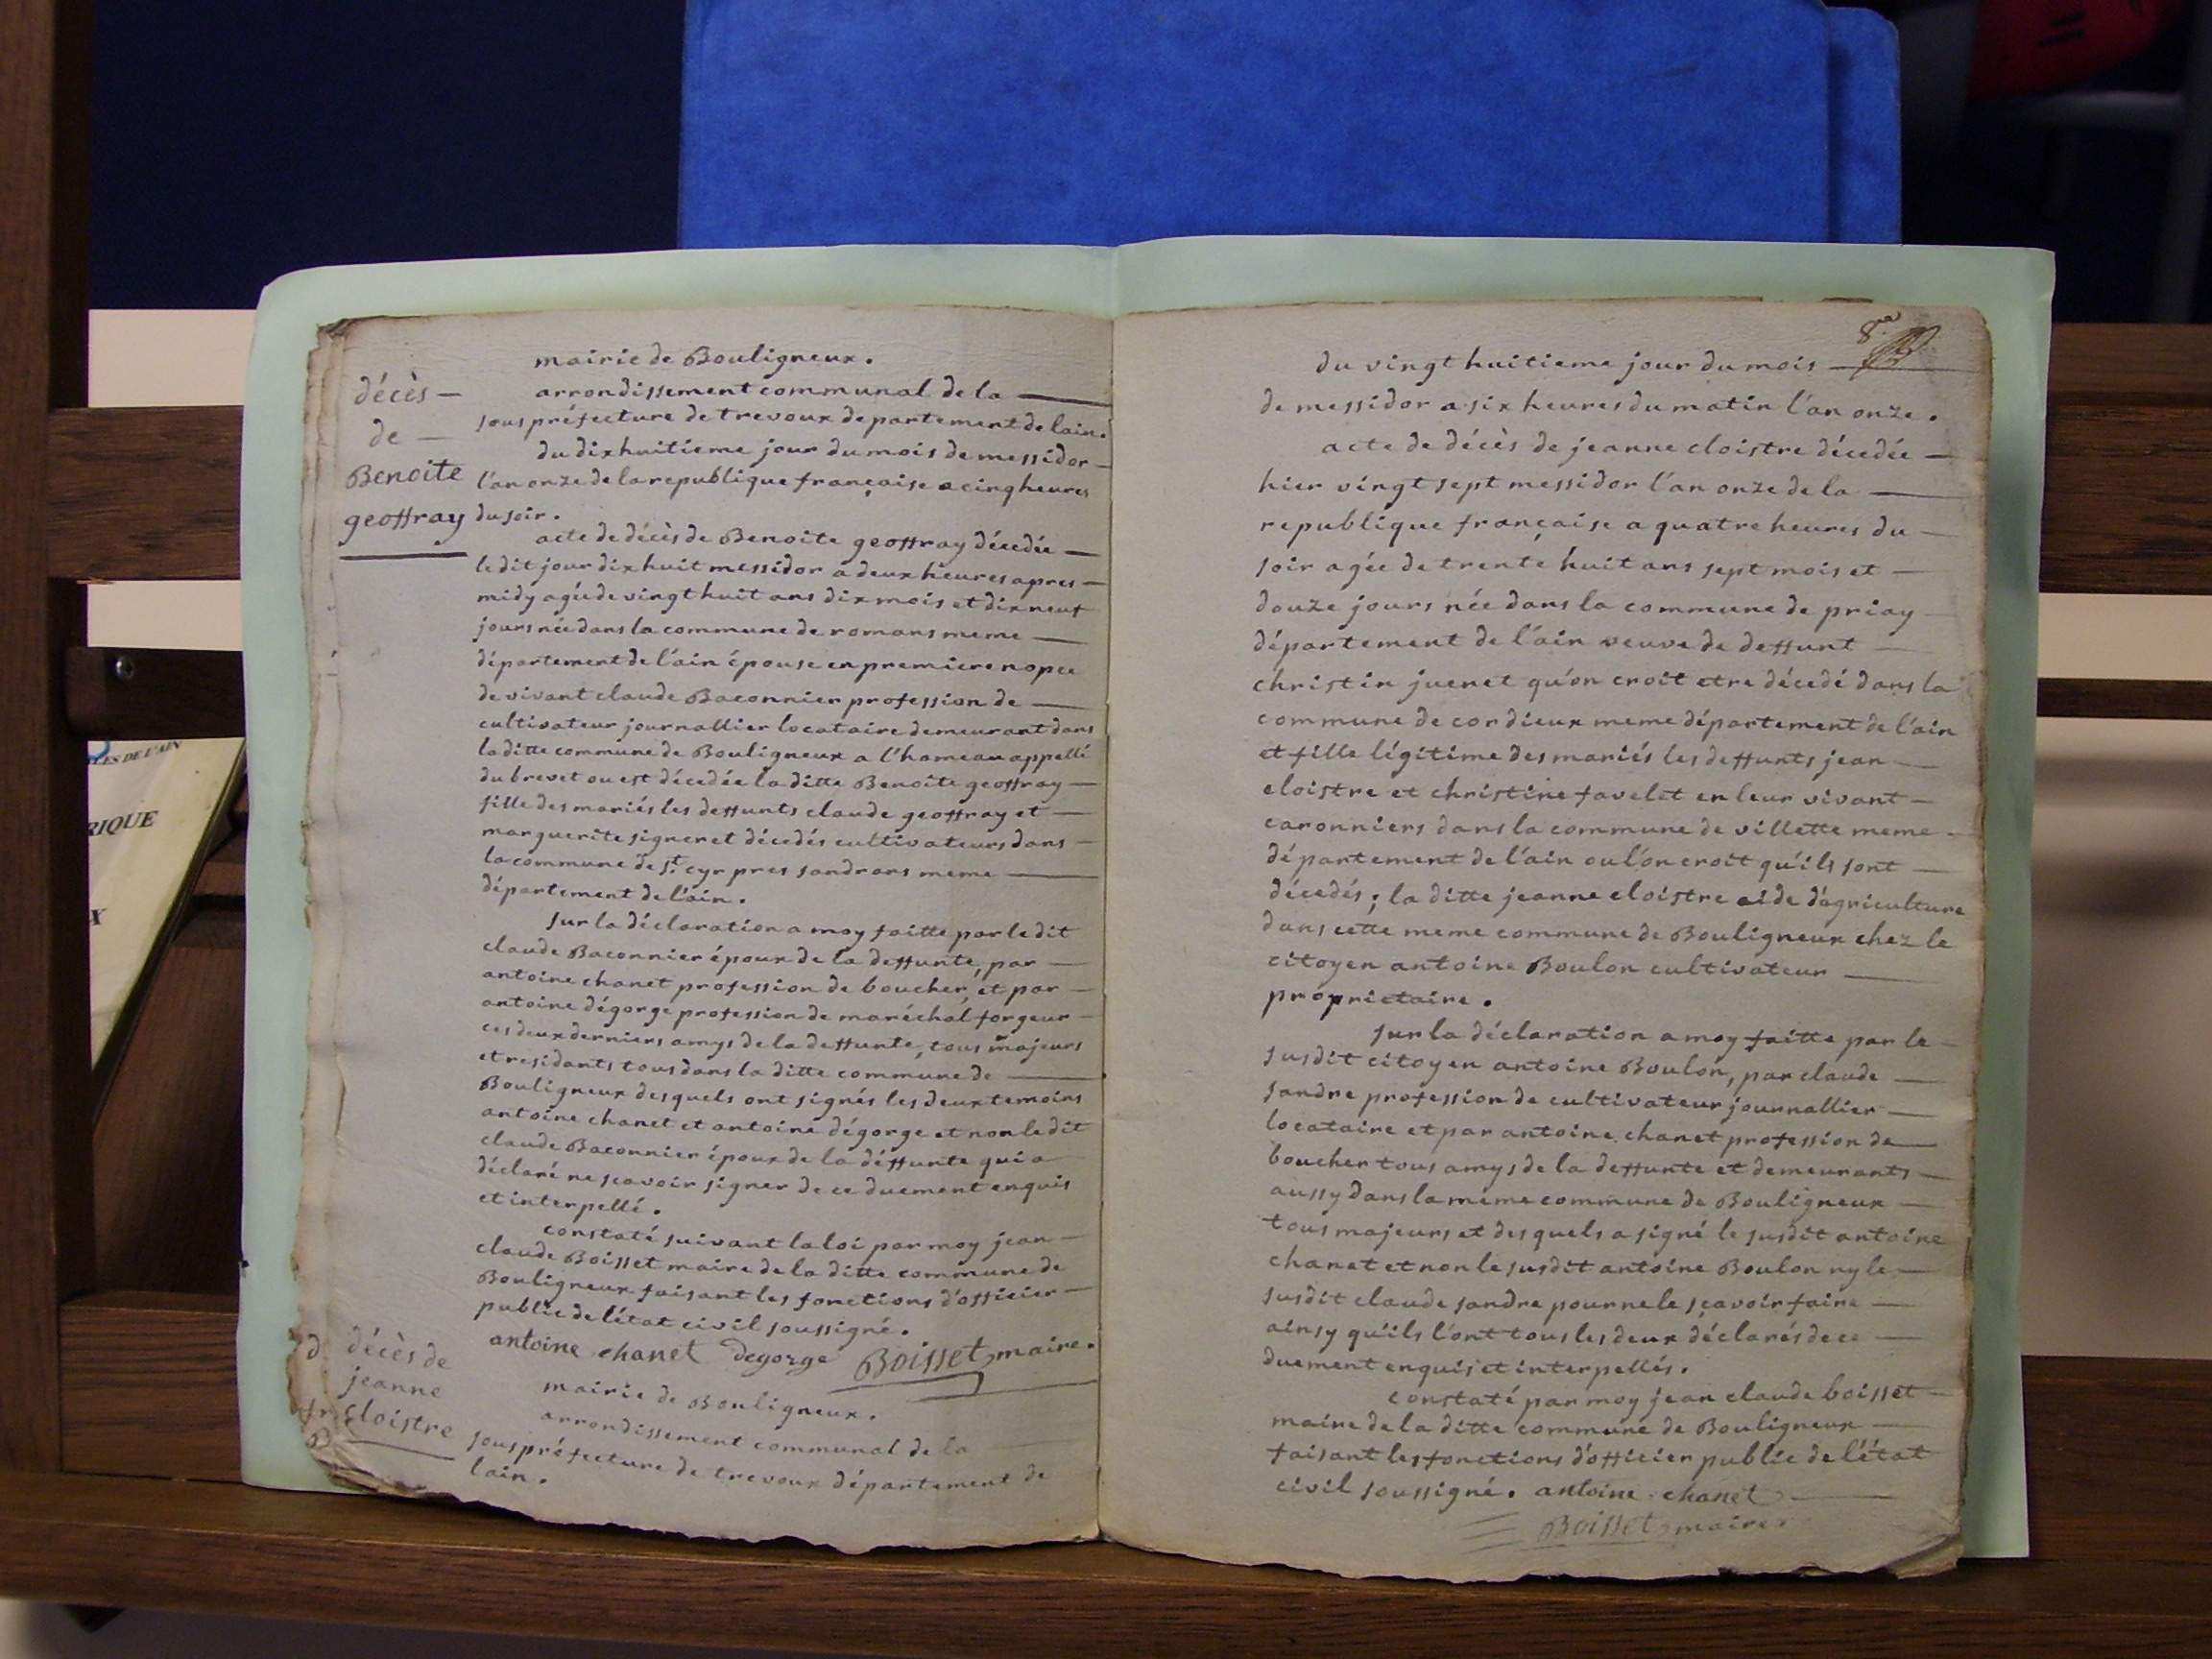 mairie de Bouligneux.
décès —
de —
Benoite
geoffray
arrondissement communal de la
sous préfecture de trevoux departement de lain.
du dixhuitieme jour du mois de messidor
l'an onze de la republique française a cinq heures
du soir.
acte de décès de Benoite geoffray décedée
le dit jour dix huit messidor a deux heures apres
midy agée de vingt huit ans dix mois et dix neuf
jours née dans la commune de romans meme
département de l'ain épouse en premiere nopce
de vivant claude Baconnier profession de
cultivateur journallier locataire demeurant dans
la ditte commune de Bouligneux a l'hameau appellé
du brevet ou est décedée la ditte Benoite geoffray
fille des mariés les deffunts claude geoffray et
marguerite signeret décedés cultivateurs dans
la commune de st. cyr pres sandrans meme
département de l'ain.
sur la déclaration a moy faitte par le dit
claude Baconnier époux de la deffunte, par
antoine chanet profession de boucher, et par
antoine dégorge profession de maréchal forgeur
ces deux derniers amys de la deffunte, tous majeurs
et residants tous dans la ditte commune de
Bouligneux desquels ont signés les deux temoins
antoine chanet et antoine dégorge et non le dit
claude Baconnier époux de la déffunte qui a
déclaré ne scavoir signer de ce duement enquis
et interpellé.
constaté suivant la loi par moy jean
claude Boisset maire de la ditte commune de
Bouligneux faisant les fonctions d'officier
public de l'état civil soussigné.
antoine chanet degorge Boisset, maire.
décès de
jeanne
cloistre
mairie de Bouligneux.
arrondissement communal de la
sous préfecture de trevoux département de
lain.
8
du vingt huitieme jour du mois
de messidor a six heures du matin l'an onze.
acte de décès de jeanne cloistre décedée
hier vingt sept messidor l'an onze de la
republique française a quatre heures du
soir agée de trente huit ans sept mois et
douze jours née dans la commune de priay
département de l'ain veuve de deffunt
christin juenet qu'on croit etre décedé dans la
commune de cordieux meme département de l'ain
et fille légitime des mariés les deffunts jean
cloistre et christine favelet en leur vivant
caronniers dans la commune de villette meme
département de l'ain ou l'on croit qu'ils sont
décedés; la ditte jeanne cloistre aide d'agriculture
dans cette meme commune de Bouligneux chez le
citoyen antoine Boulon cultivateur
proprietaire.
sur la déclaration a moy faitte par le
susdit citoyen antoine Boulon, par claude
sandre profession de cultivateur journallier
locataire et par antoine chanet profession de
boucher tous amys de la deffunte et demeurants
aussy dans la méme commune de Bouligneux
tous majeurs et desquels a signé le susdit antoine
chanet et non le susdit antoine Boulon ny le
susdit claude sandre pour ne le sçavoir faire
ainsy qu'ils l'ont tous les deux déclarés de ce
duement enquis et interpellés.
constaté par moy jean claude boisset
maire de la ditte commune de Bouligneux
faisant les fonctions d'officier public de l'état
civil soussigné. antoine chanet
Boisset, maire
LES DE L'AIN
RIQUE
X